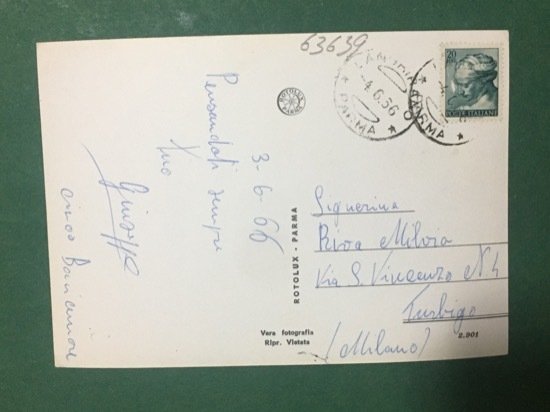 63639
3-6-66
Pensandoti sempre
tuo
Giuseppe
ciao
ROTOLUX
PARMA
ROTOLUX - PARMA
Vera fotografia
Ripr. Vietata
PARMA
4.6.66
PARMA
20
POSTE ITALIANE
Signorina
Riva Milvia
Via S. Vincenzo N 4
Turbigo
(Milano)
2.901